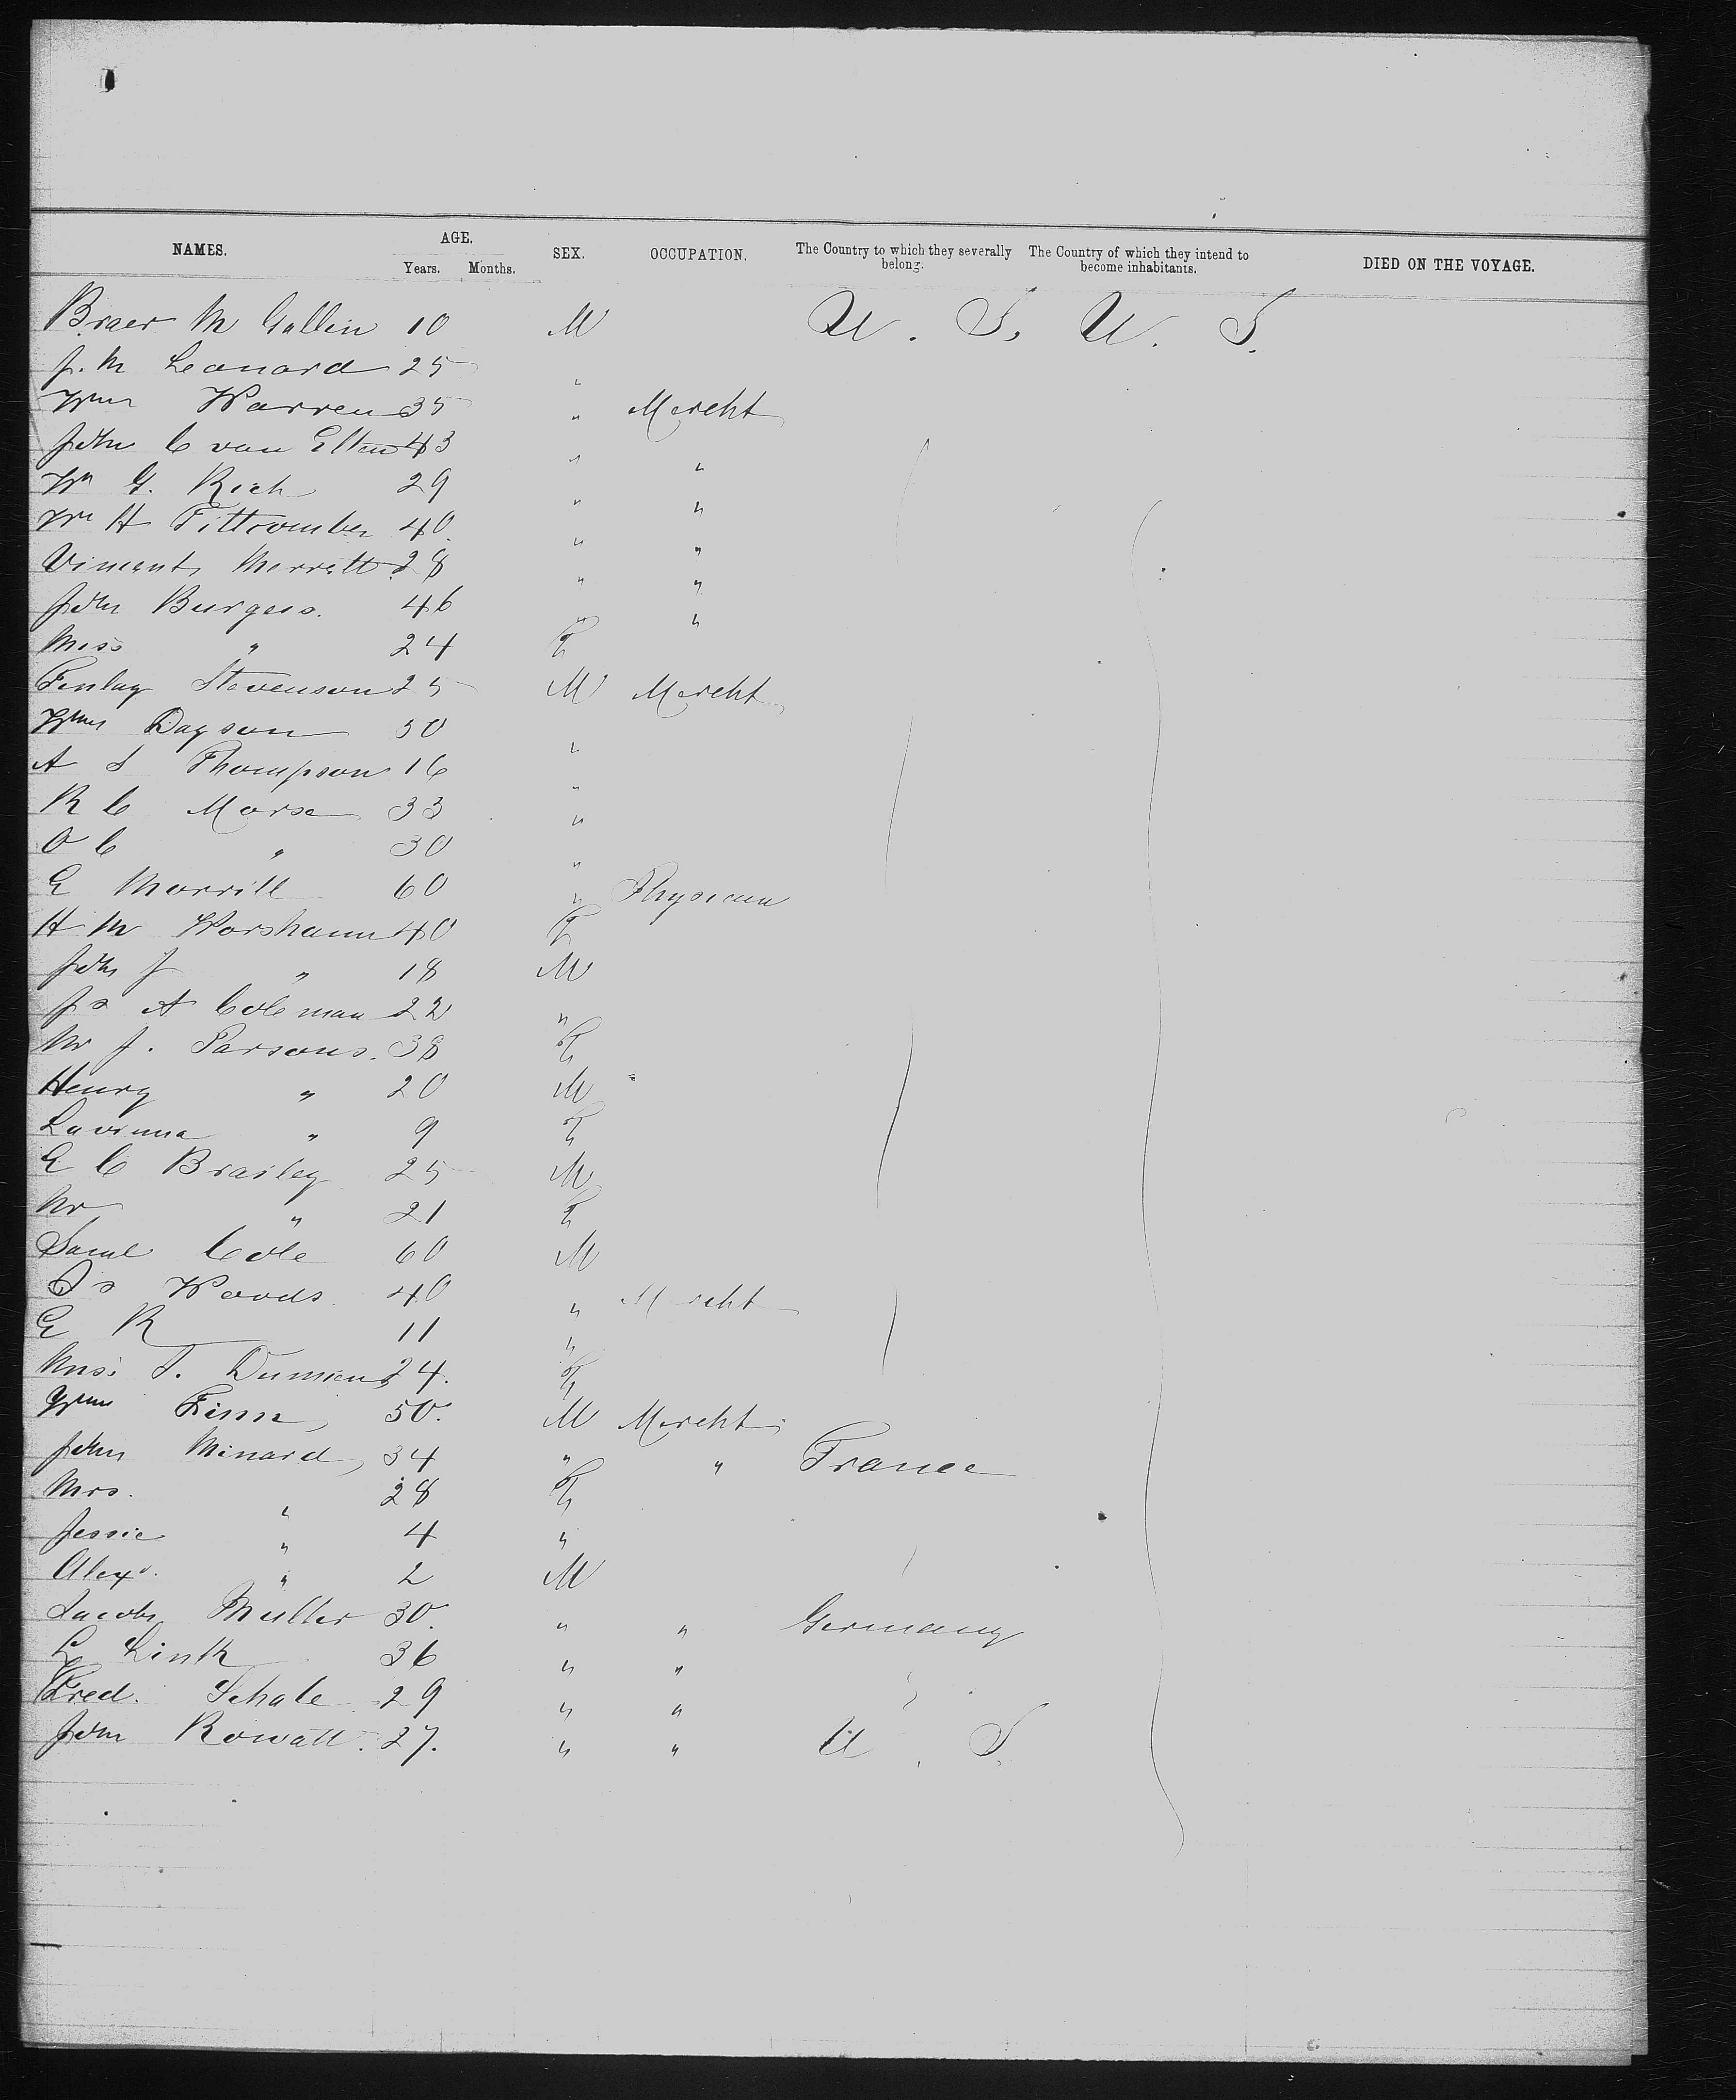 NAMES. AGE. SEX. OCCUPATION. The Country to which they severally belong. The Country of which they intend to become inhabitants. DIED ON THE VOYAGE.
Years. Months.
Braer M Gallin 10 M U. S. U. S.
J. M Leonard 25 "
Wm Warren 35 " Mercht
John C van Etten 43 " "
Wm G. Rich 29 " "
Wm H Tittcomber 40. " "
Vincent Merrett 28 " "
John Burgess. 46 " "
Miss " 24 F
Finlay Stevenson 25 M Mercht
Wm Dayson 50 "
A S Thompson 16 "
R C Morse 33 "
O C " 30 "
E Morrill 60 " Physician
H M Worsham 40 F
John J " 18 M
Js A Coleman 22 "
Mr J. Parsons. 38 F
Henry " 20 M
Lavinna " 9 F
E C Brailey 25 M
Mr " 21 F
Saml Cole 60 M
Js Woods 40 " Mercht
E R 11 "
Miss T. 24. F
Wm Finn, 50. M Mercht
John Minard, 34 " " France
Mrs. " 28 F
Jessie " 4 "
Alexr. " 2 M
Jacob Muller 30. " " Germany
L Link 36 " "
Fred. Schale 29 " "
John Rowatt. 27. " " U. S.